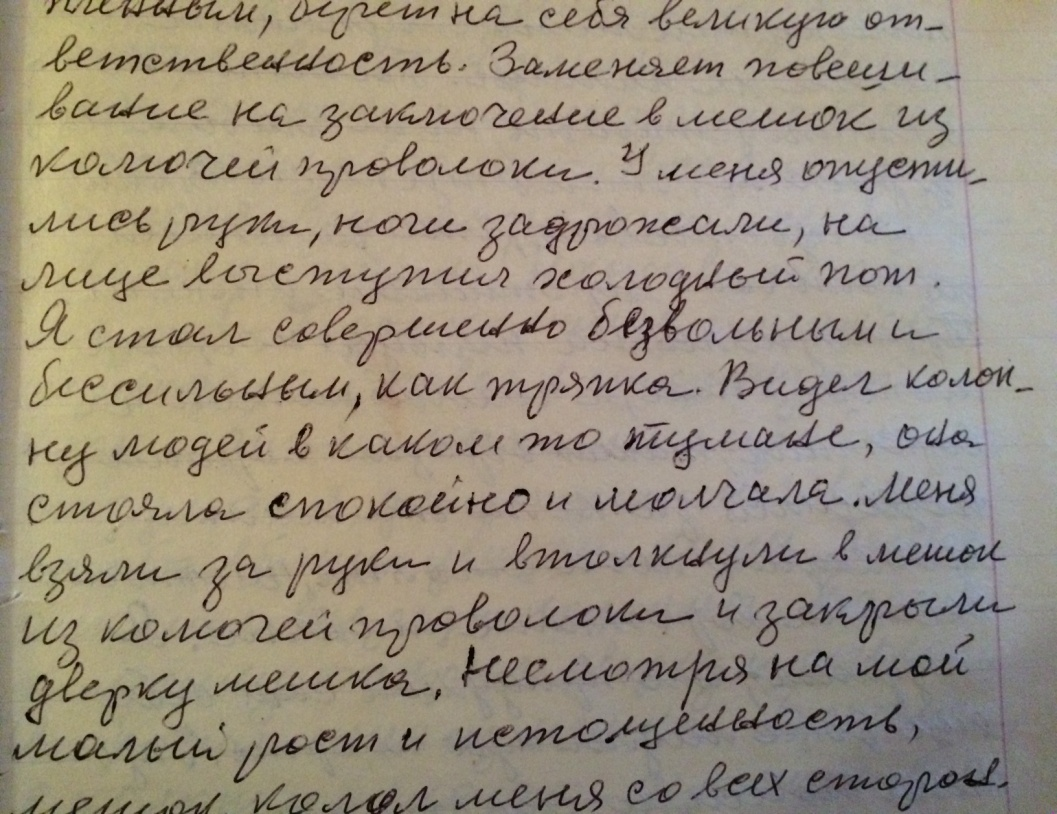 пленным, берет на себя великую от-
ветственность. Заменяет повеши-
вание на заключение в мешок из
колючей проволоки. У меня опусти-
лись руки, ноги задрожали, на
лице выступил холодный пот.
Я стал совершенно безвольным и
бессильным, как тряпка. Видел колон-
ну людей в каком то тумане, она
стояла спокойно и молчала. Меня
взяли за руки и втолкнули в мешок
из колючей проволоки и закрыли
дверку мешка. Несмотря на мой
малый рост и истощенность,
мешок колол меня со всех сторон.